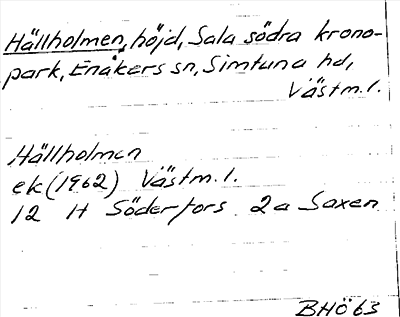 Hällholmen, höjd, Sala södra krono-
park, Enåkers sn, Simtuna hd,
Västm. l.
Hällholmen
ek (1962) Västm. l.
12 H Söderfors 2a Saxen
BHÖ 63